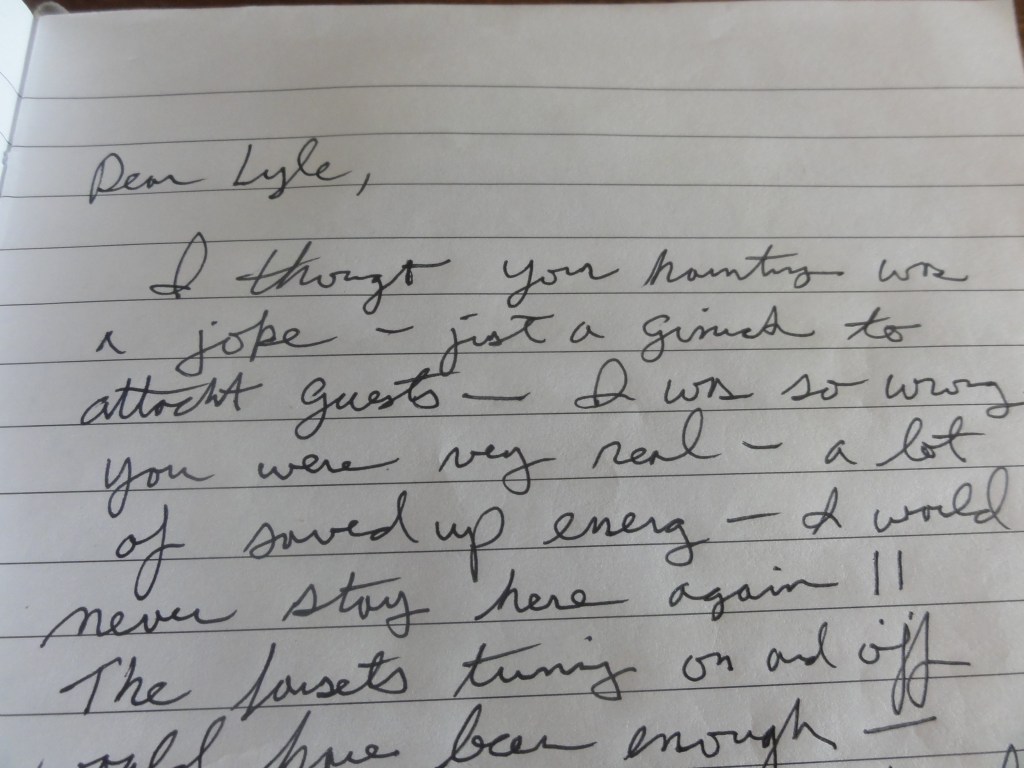 Dear Lyle,
I thougt your haunting was
a joke - just a gimick to
attracht guests — I was so wrong
you were very real - a lot
of saved up energ — I would
never stay here again !!
The fausets turning on and off
would have been enough —